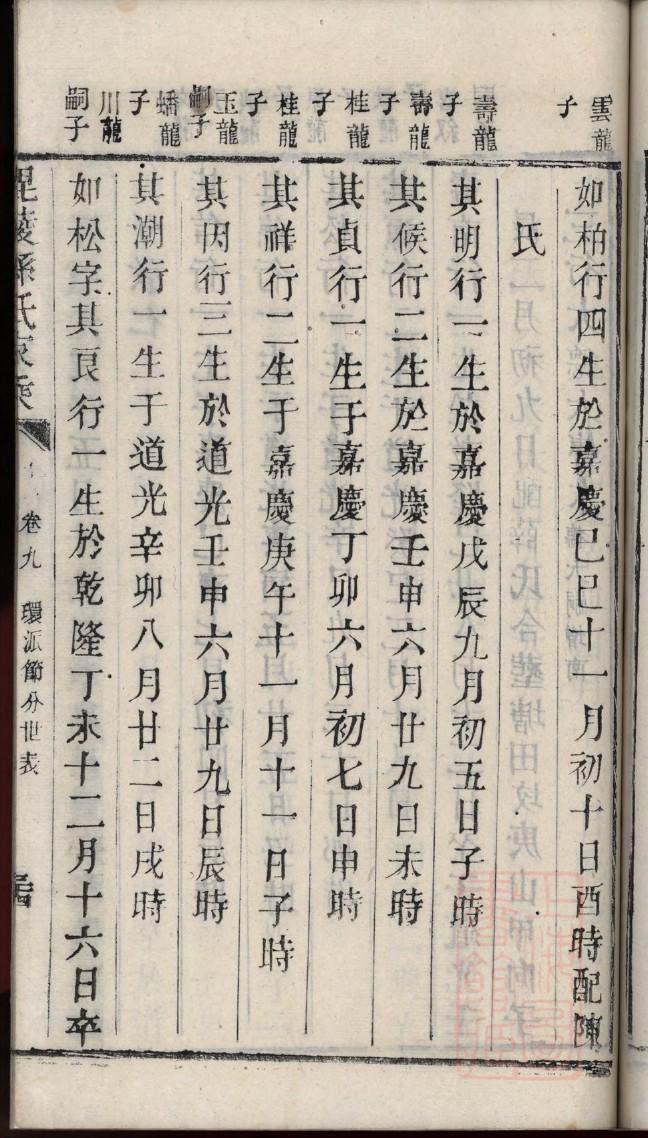 雲龍子
如柏行四生於嘉慶己巳十一月初十日酉時配陳
氏
壽龍子
其明行一生於嘉慶戊辰九月初五日子時
壽龍子
其候行二生於嘉慶壬申六月廿九日未時
桂龍子
其貞行一生于嘉慶丁卯六月初七日申時
桂龍子
其祥行二生于嘉慶庚午十一月十一日子時
玉龍嗣子
其因行三生於道光壬申六月廿九日辰時
蟠龍子
其潮行一生于道光辛卯八月廿二日戌時
川龍嗣子
如松字其良行一生於乾隆丁未十二月十六日卒
毘陵孫氏家乘
卷九 環派節分世表